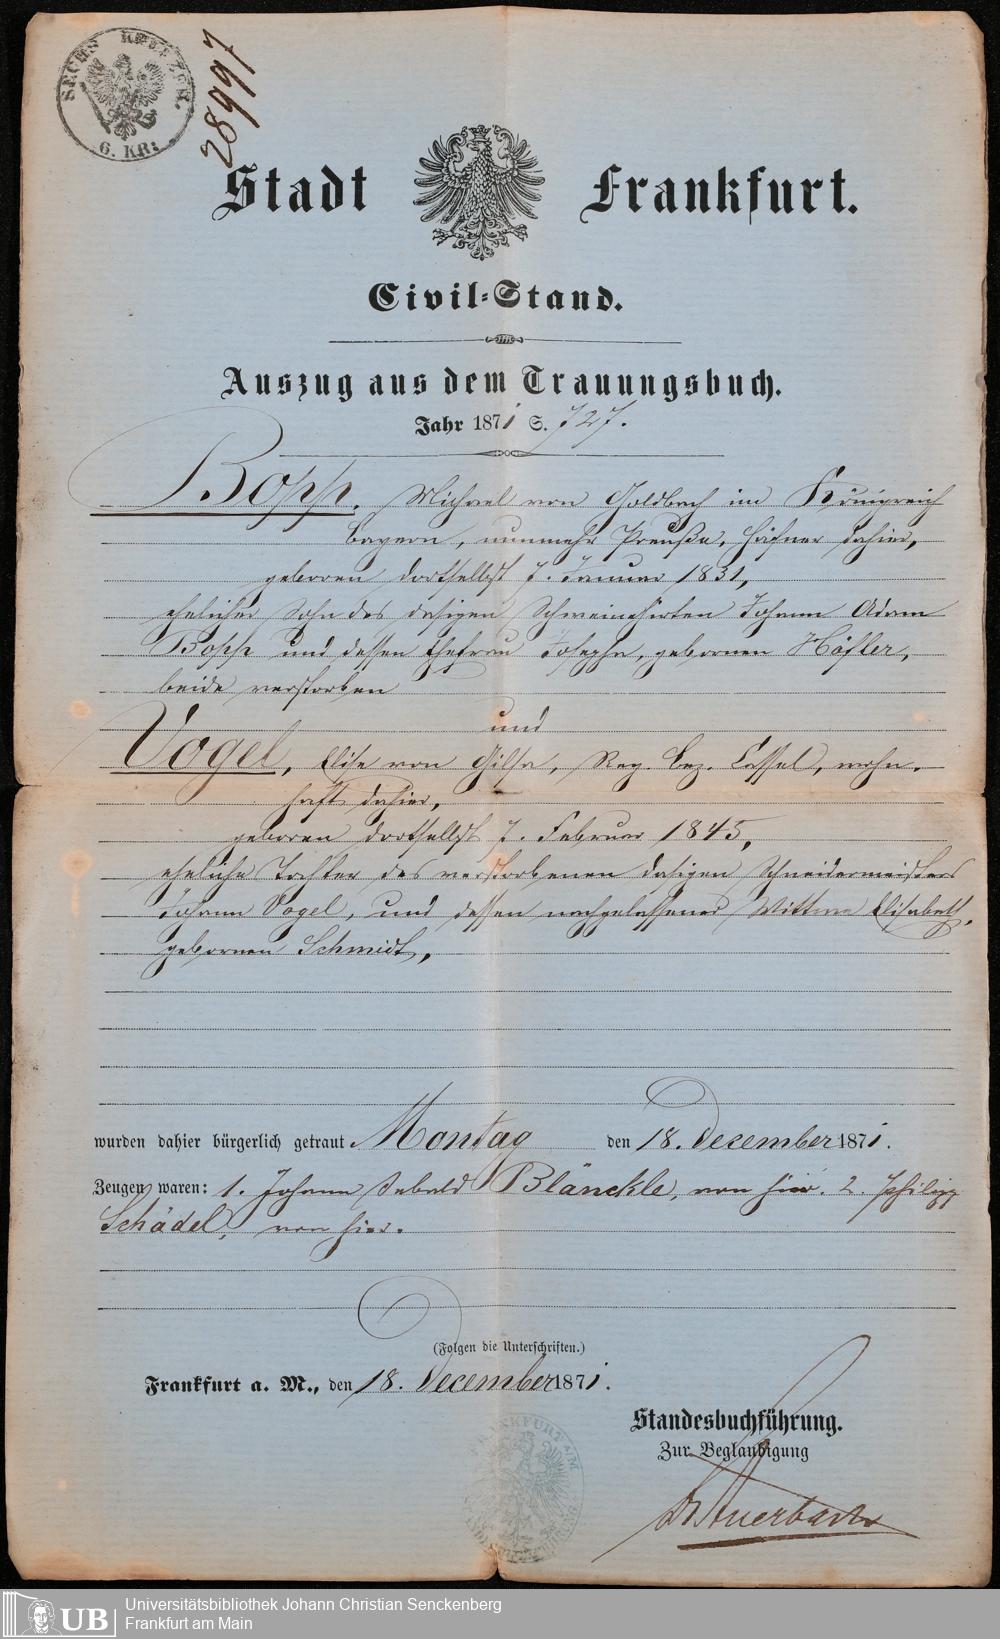 SECHS KREUZER.
6. KR:
28997
Stadt Frankfurt.
Civil-Stand.
Auszug aus dem Trauungsbuch.
Jahr 1871 S. 727.
Bopp, Michael von Goldbach im Königreich
Bayern, nunmehr Preuße, Häfner dahier,
geboren dortselbst 7. Januar 1831,
ehelicher Sohn des dasigen Schweinehirten Johann Adam
Bopp und dessen Ehefrau Josepha, gebornen Höfler,
beide verstorben
und
Vogel, Elise von Gilsa, Reg. Bez. Cassel, wohn-
haft dahier,
geboren dortselbst 7. Februar 1845,
eheliche Tochter des verstorbenen dasigen Schneidermeisters
Johann Vogel, und dessen nachgelassener Wittwe Elisabeth,
gebornen Schmidt,
wurden dahier bürgerlich getraut Montag den 18. Dezember 1871.
Zeugen waren: 1. Johann Sebald Blänckle, von hier. 2. Philipp
Schädel, von hier.
(Folgen die Unterschriften.)
Frankfurt a. M., den 18. December 1871.
Standesbuchführung.
Zur Beglaubigung
FRANKFURT A/M
Dr Auerbach
UB
Universitätsbibliothek Johann Christian Senckenberg
Frankfurt am Main